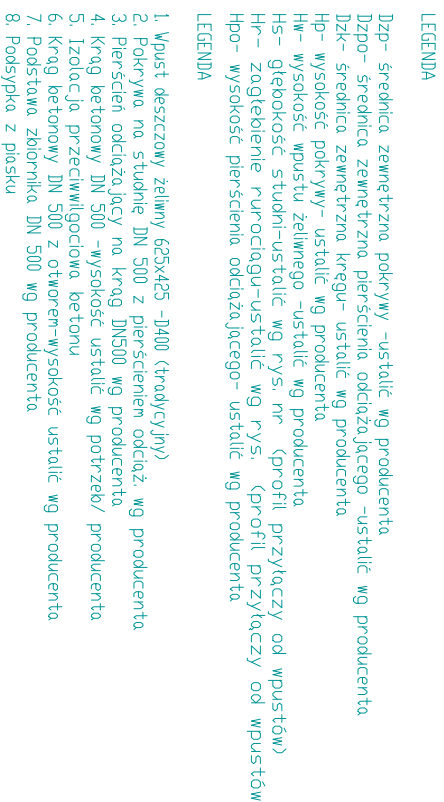 LEGENDA
Dzp- średnica zewnętrzna pokrywy -ustalić wg producenta
Dzpo- średnica zewnętrzna pierścienia odciążającego -ustalić wg producenta
Dzk- średnica zewnętrzna kręgu- ustalić wg producenta
Hp- wysokość pokrywy- ustalić wg producenta
Hw- wysokość wpustu żeliwnego -ustalić wg producenta
Hs- głębokość studni-ustalić wg rys. nr (profil przyłączy od wpustów)
Hr- zagłebienie rurociągu-ustalić wg rys. (profil przyłączy od wpustów
Hpo- wysokość pierścienia odciążającego- ustalić wg producenta
LEGENDA
1. Wpust deszczowy żeliwny 625x425 -D400 (tradycyjny)
2. Pokrywa na studnię DN 500 z pierścieniem odciąż. wg producenta
3. Pierścień odciążający na krąg DN500 wg producenta
4. Krąg betonowy DN 500 -wysokość ustalić wg potrzek/ producenta
5. Izolacja przeciwwilgociowa betonu
6. Krąg betonowy DN 500 z otworem-wysokość ustalić wg producenta
7. Podstawa zbiornika DN 500 wg producenta
8. Podsypka z piasku